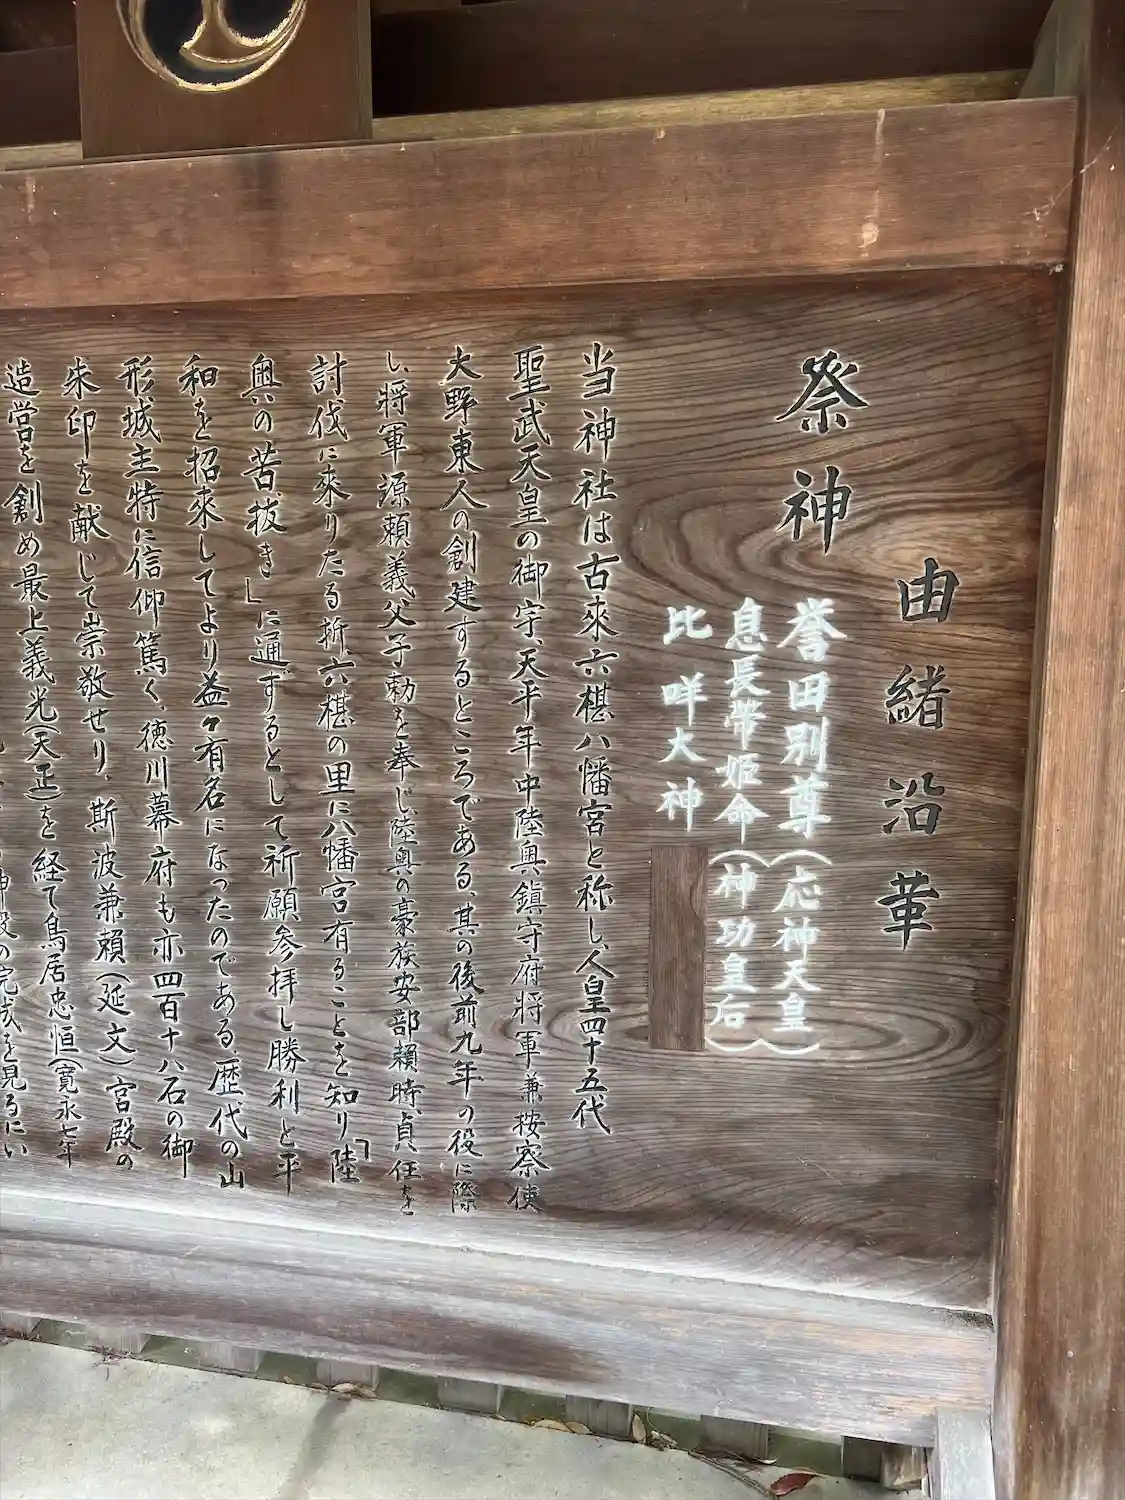 由緒沿革
祭神
誉田別尊（応神天皇）
息長帶姫命（神功皇后）
比咩大神
当神社は古來六椹八幡宮と称し、人皇四十五代
聖武天皇の御宇、天平年中陸奥鎭守府将軍兼按察使
大野東人の創建するところである、其の後前九年の役に際
し、将軍源頼義父子勅を奉じ陸奥の豪族安部頼時、貞任を
討伐に来りたる折、六椹の里に八幡宮有ることを知り「陸
奥の苦抜き」に通ずるとして祈願参拝し勝利と平
和を招来してより益々有名になったのである、歴代の山
形城主特に信仰篤く、徳川幕府も亦四百十八石の御
朱印を献じて崇敬せり、斯波兼頼（延文）宮殿の
造営を創め最上義光（天正）を経て鳥居忠恒（寛永七年
神殿の完成を見るにい